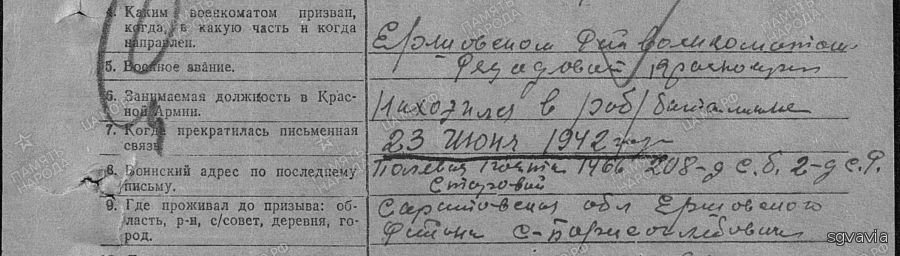 4. Каким военкоматом призван, когда, в какую часть и когда направлен.
Ершовском Рай военкоматом
5. Военное звание.
Рядовой красноарм
6. Занимаемая должность в Красной Армии.
Находился в /раб/ батальоне
7. Когда прекратилась письменная связь.
23 июня 1942 года
8. Воинский адрес по последнему письму.
Полевая почта 1466 208-д с.б. 2-д с.р.
9. Где проживал до призыва: область, р-н, с/совет, деревня, город.
Саратовская обл Ершовского
Района с-
sgvavia
ПАМЯТЬ НАРОДА